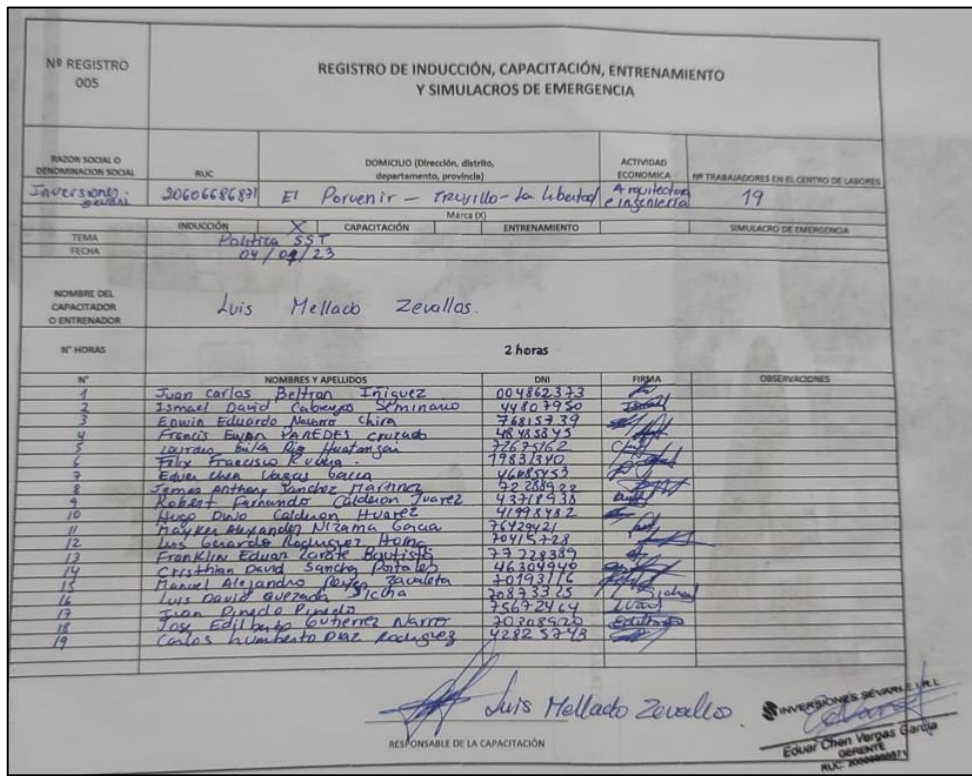 Nº REGISTRO
005
REGISTRO DE INDUCCIÓN, CAPACITACIÓN, ENTRENAMIENTO
Y SIMULACROS DE EMERGENCIA
RAZON SOCIAL O
DENOMINACION SOCIAL
RUC
DOMICILIO (Dirección, distrito,
departamento, provincia)
ACTIVIDAD
ECONOMICA
Nº TRABAJADORES EN EL CENTRO DE LABORES
Inversiones
20606686871
El Porvenir - Trujillo - La Libertad
e ingenieria
19
Marca (X)
INDUCCIÓN X CAPACITACIÓN ENTRENAMIENTO SIMULACRO DE EMERGENCIA
TEMA Politica SST
FECHA
NOMBRE DEL
CAPACITADOR
O ENTRENADOR
Luis Mellado Zevallos.
Nº HORAS 2 horas
Nº NOMBRES Y APELLIDOS DNI FIRMA OBSERVACIONES
1 Juan Carlos Beltran Iñiguez 004862373
2 Ismael David Seminario 44807950
3 Eduardo Navarro Chira 76815739
4 Francis PAREDES Cruzado
5 Lourdes
6 Felix Francisco
7 Eduer Chen Vargas Garcia
8 James Anthony Sanchez Martinez 72288922
9 Robert Fernando Calderon Juarez 43718938
10 Hugo Calderon 41998482
11 Mayker Alexander Nizama Garcia 76429421
12 Luis Gerardo Rodriguez 70415728
13 Franklin Eduar Zarate Bautista 77228389
14 Cristhian David Sancho Portales 46304940
15 Manuel Alejandro Zavaleta 70193116
16 Luis David Quezada Sicha 70873325
17 Juan Pinedo Pinedo 75672464 Juan
18 Jose Edilberto Gutierrez Narro 70308920
19 Carlos Humberto Diaz Rodriguez 42825743
Luis Mellado Zevallos.
RESPONSABLE DE LA CAPACITACIÓN
INVERSIONES SEVAR E.I.R.L
Eduer Chen Vargas Garcia
GERENTE
RUC: